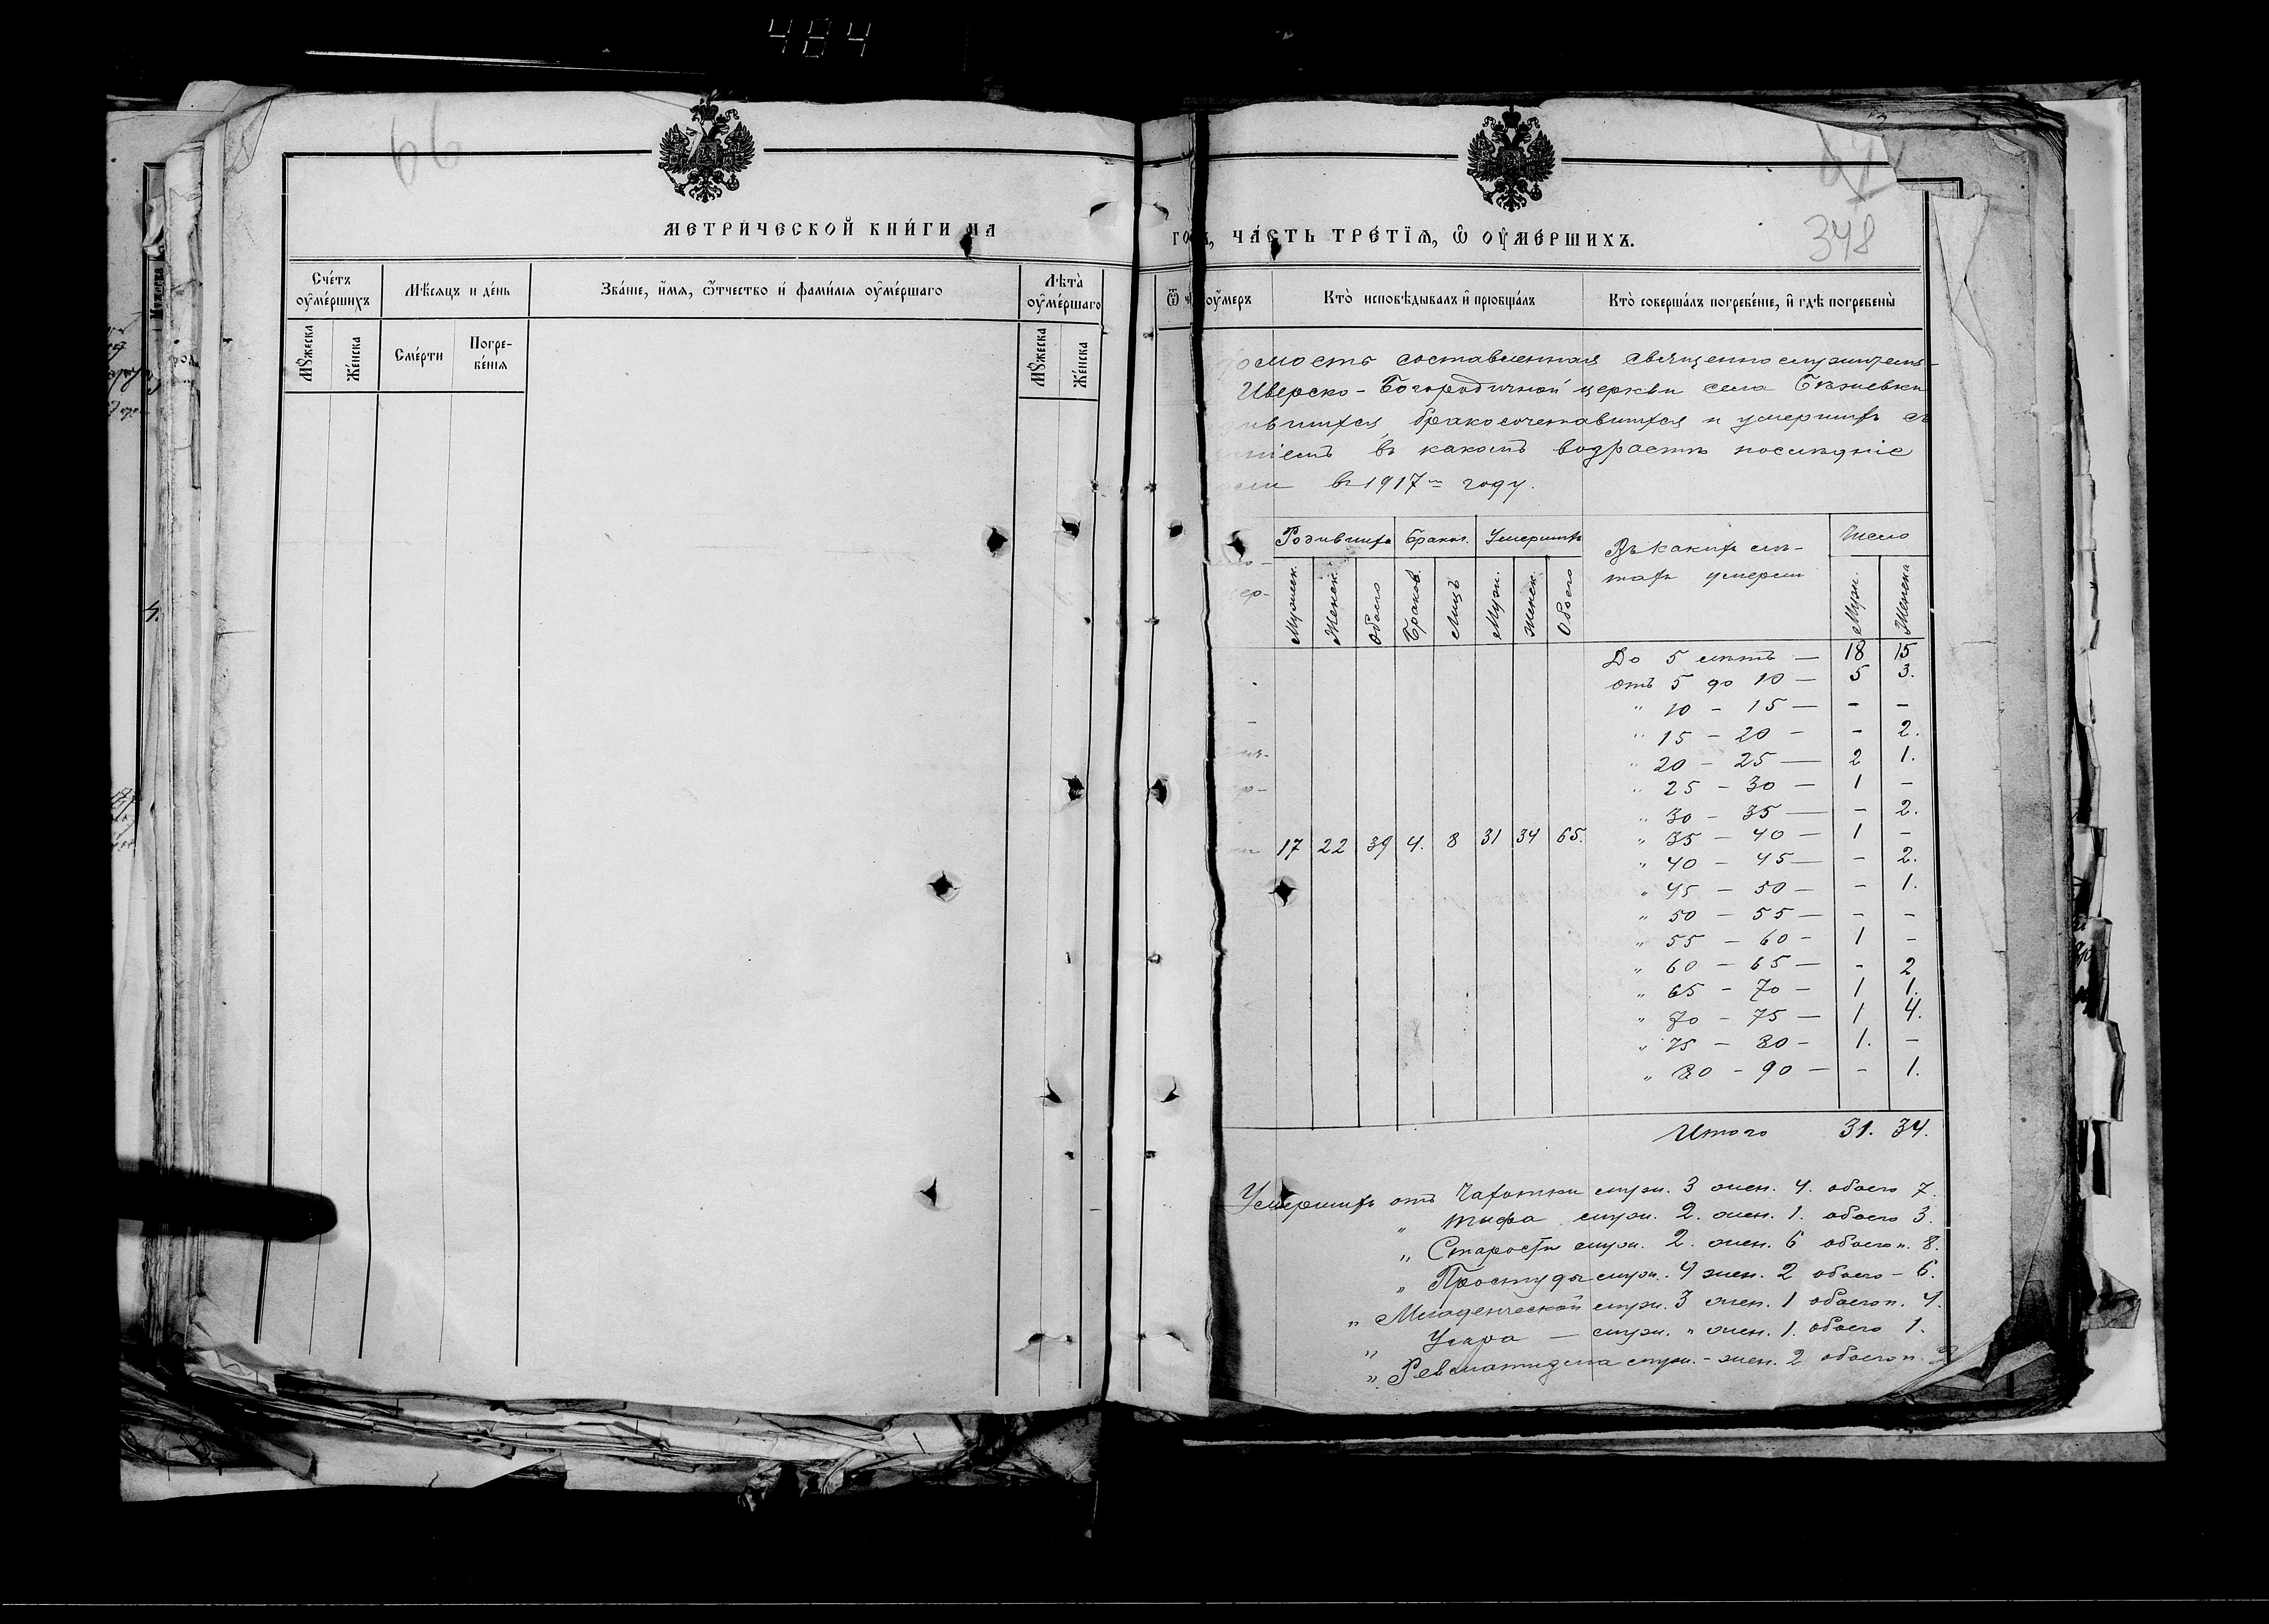 484
66
МЕТРИЧЕСКОЙ КНИГИ НА
Счетъ оумершихъ
Мѣсяцъ и день
Званіе, имя, отчество и фамилія оумершаго
Лѣта оумершаго
Мꙋжеска
Женска
Смерти
Погре-
бенія
Мꙋжеска
Женска
67
348
ГОДЪ, ЧАСТЬ ТРЕТІЯ, Ѿ ОУМЕРШИХЪ.
оумеръ
Кто исповѣдывалъ и пріобщалъ
Кто совершалъ погребеніе, и гдѣ погребены
омость составленная священнослужителя-
Иверско-Богородичной церкви села
вшихся, бракосочетавшихся и умершихъ съ
ніемъ въ какомъ возрастѣ послѣдніе
въ 1917 м году.
Родившихъ Бракъ. Умершихъ
Въ какихъ лѣ-
тахъ умерли
Число
Мужеск. Женск. Обоего Браков. Лицъ Муж. Женск. Обоего
Муж. Женска
До 5 лѣтъ — 18 15
отъ 5 до 10 — 5 3.
" 10 - 15 — - -
" 15 - 20 - - 2.
" 20 - 25 — 2 1.
" 25 - 30 — 1 -
" 30 - 35 — - 2.
17 22 39 4. 8 31 34 65.
" 35 - 40 — 1 -
" 40 - 45 — - 2.
" 45 - 50 — - 1.
" 50 - 55 — - -
" 55 - 60 - 1 -
" 60 - 65 — - 2
" 65 - 70 - 1 1.
" 70 - 75 — 1 4.
" 75 - 80 - 1. -
" 80 - 90 — - 1.
Итого 31. 34.
Умершихъ отъ Чахотки муж. 3 жен. 4. обоего 7.
" тифа муж. 2. жен. 1. обоего 3.
" Старости муж. 2. жен. 6 обоего п. 8.
" Простуды муж. 4 жен. 2 обоего - 6.
" Младенческой муж. 3 жен. 1 обоего п. 4.
" Угара — муж. " жен. 1. обоего 1.
" Ревматизма муж. - жен. 2 обоего п. 2